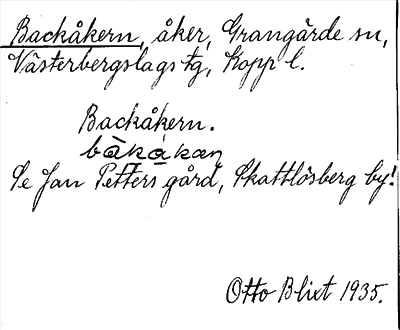 Backåkern, åker, Grangärde sn,
Västerbergslags tg, Kopp l.
Backåkern.
Se Jan Petters gård, Skattlösberg by!
Otto Blixt 1935.